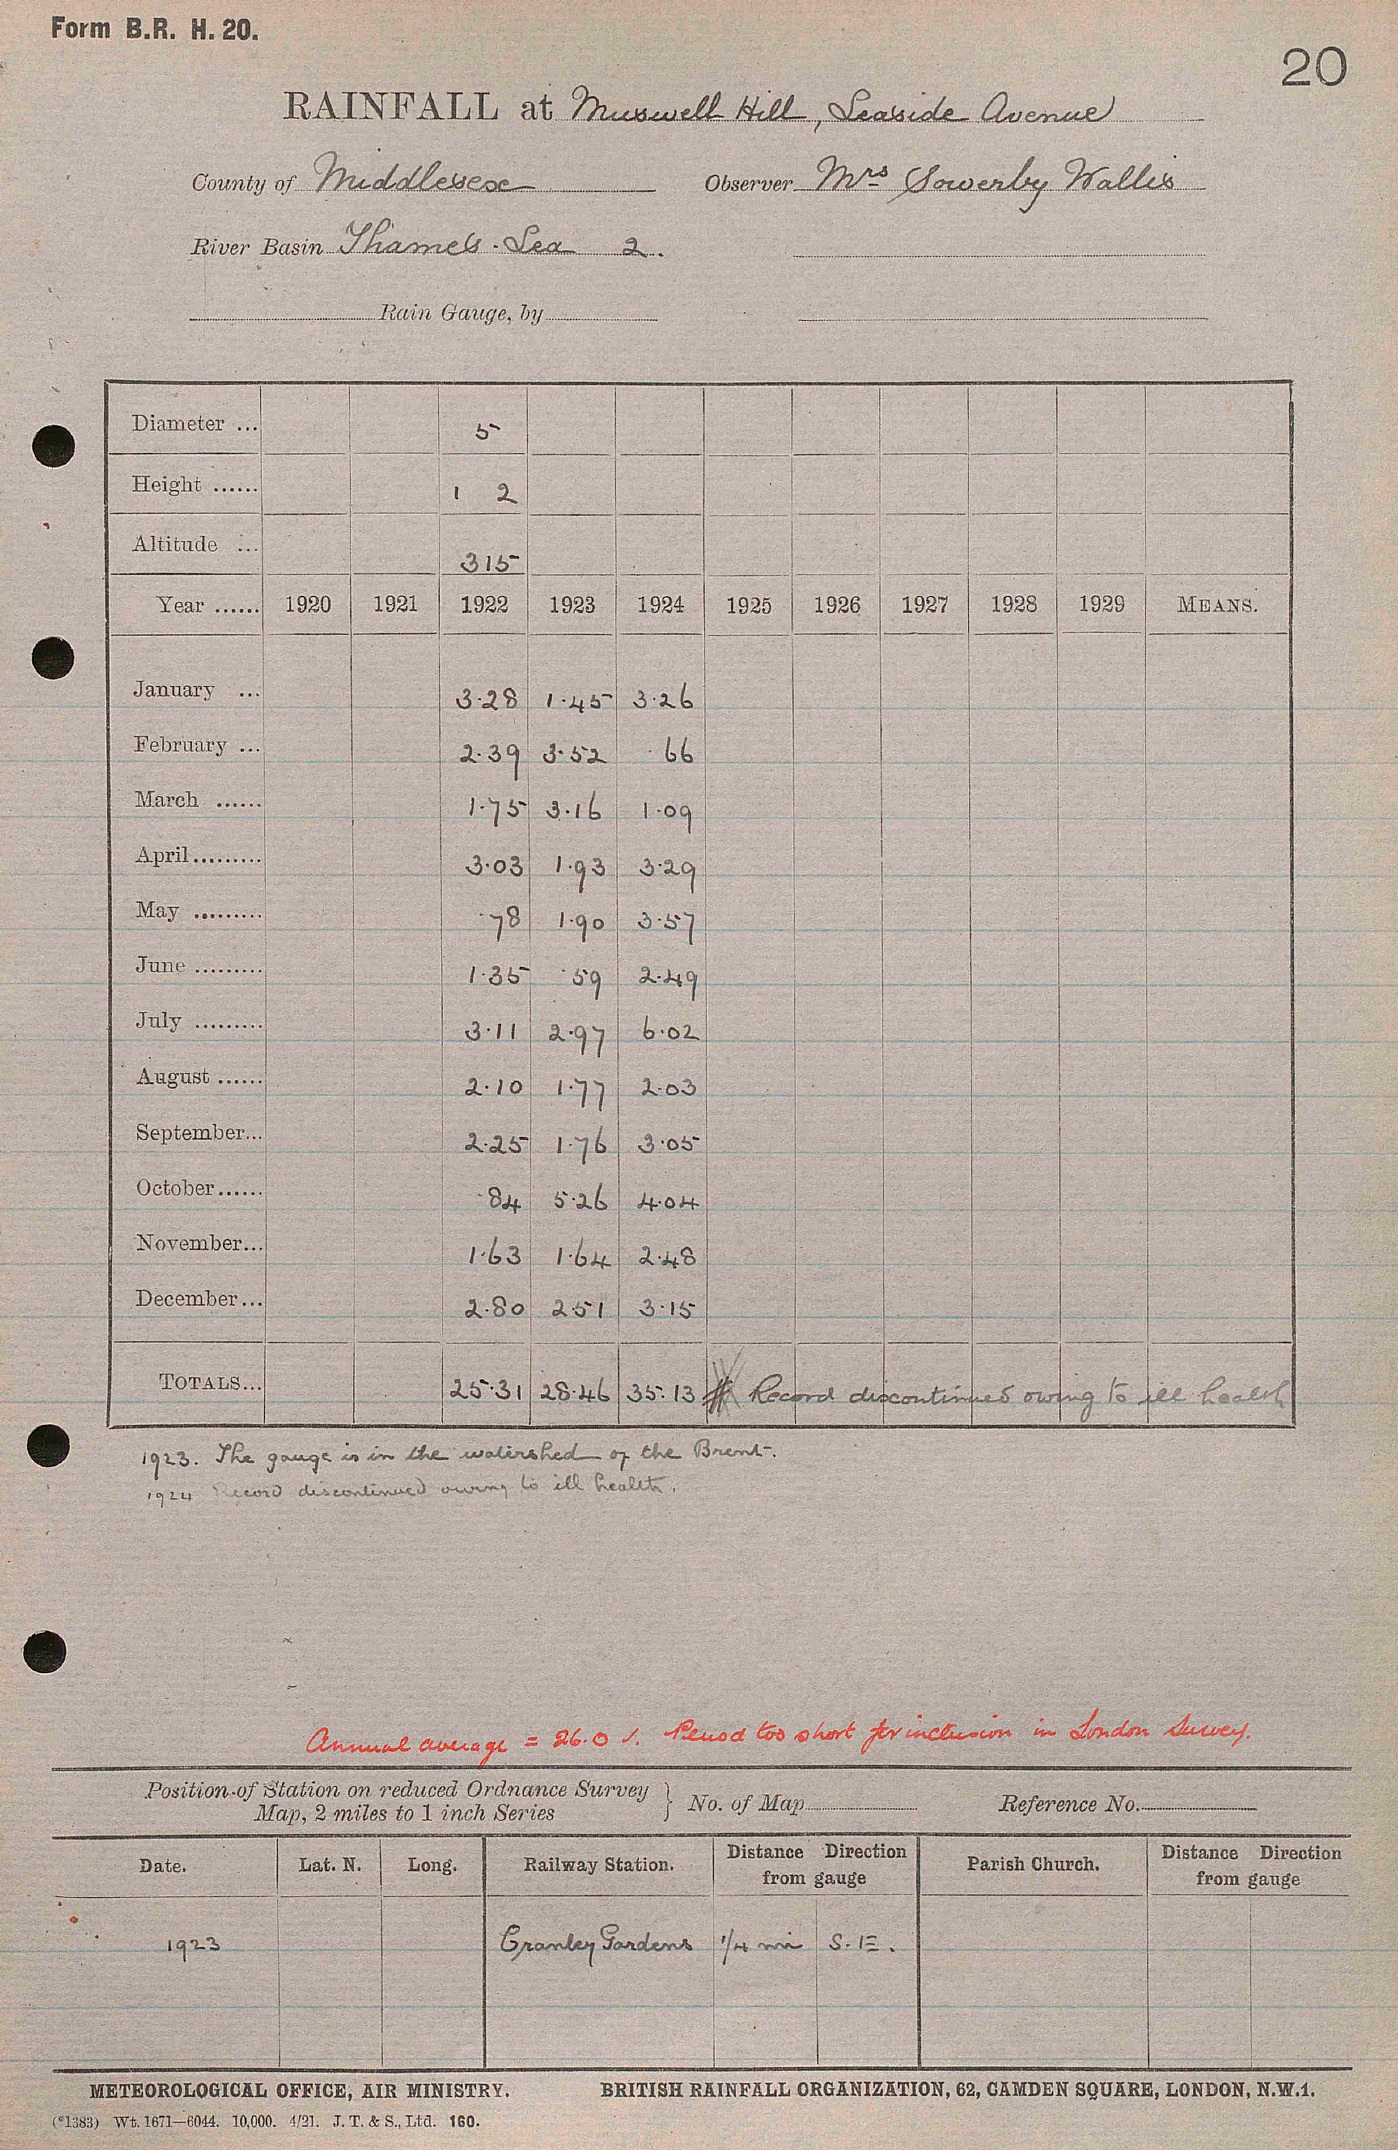 Form B.R. H. 20.
20
RAINFALL at Muswell Hill, Leaside Avenue
County of Middlesex Observer Mrs Sowerby Wallis
River Basin Thames · Lea 2.
Rain Gauge, by
Diameter ... 5
Height ...... 1 2
Altitude ... 315
Year ...... 1920 1921 1922 1923 1924 1925 1926 1927 1928 1929 MEANS.
January ... 3·28 1·45 3·26
February ... 2·39 3·52 ·66
March ...... 1·75 3·16 1·09
April ......... 3·03 1·93 3·29
May ......... ·78 1·90 3·57
June ......... 1·35 ·59 2·49
July ......... 3·11 2·97 6·02
August ...... 2·10 1·77 2·03
September... 2·25 1·76 3·05
October ...... ·84 5·26 4·04
November... 1·63 1·64 2·48
December... 2·80 2·51 3·15
TOTALS... 25·31 28·46 35·13 Record discontinued owing to ill health
1923. The gauge is in the watershed of the Brent.
1924 Record discontinued owing to ill health.
Annual average = 26.0 Period too short for inclusion in London Survey.
Position of Station on reduced Ordnance Survey
Map, 2 miles to 1 inch Series } No. of Map Reference No.
Date. Lat. N. Long. Railway Station. Distance Direction from gauge Parish Church. Distance Direction from gauge
1923 Cranley Gardens 1/4 mi S.E.
METEOROLOGICAL OFFICE, AIR MINISTRY. BRITISH RAINFALL ORGANIZATION, 62, CAMDEN SQUARE, LONDON, N.W.1.
(*1383) Wt. 1671—6044. 10,000. 4/21. J. T. & S., Ltd. 160.